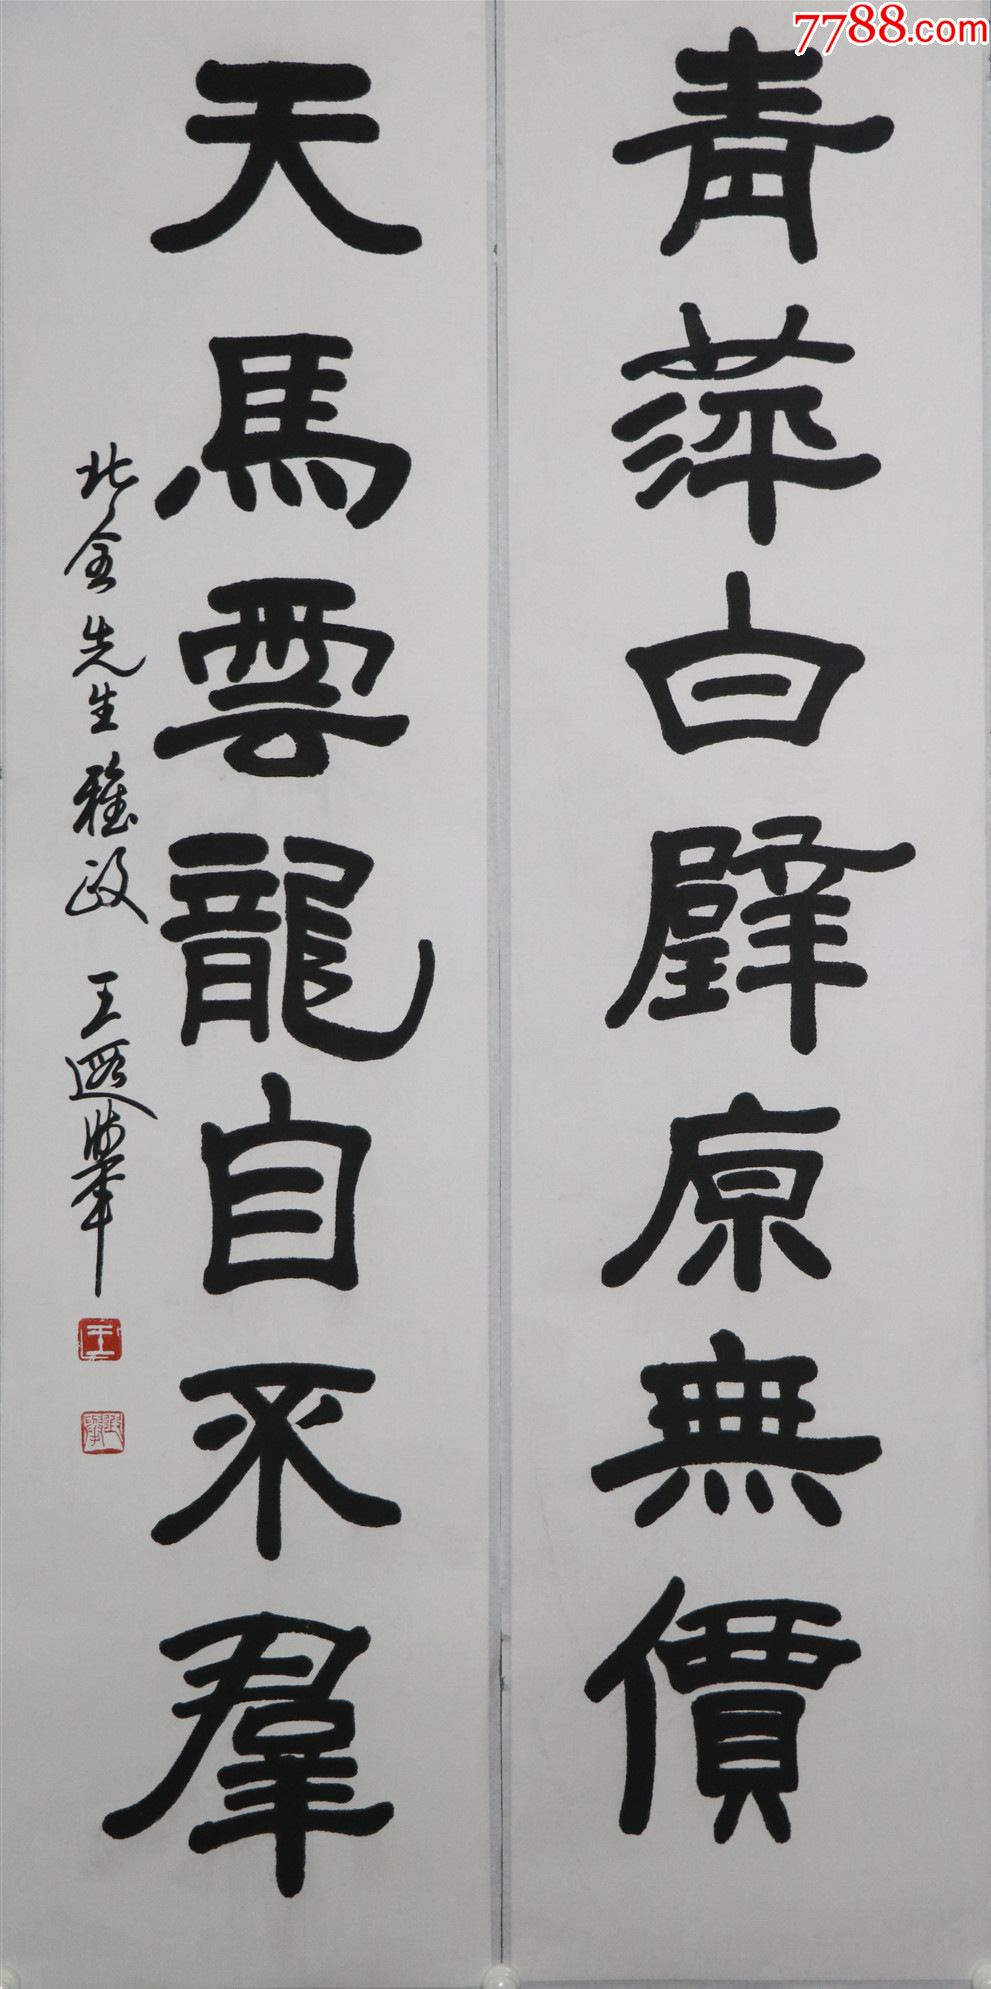 7788.com
青萍白璧原無價
天馬雲龍自不羣
北金先生雅政 王遐舉